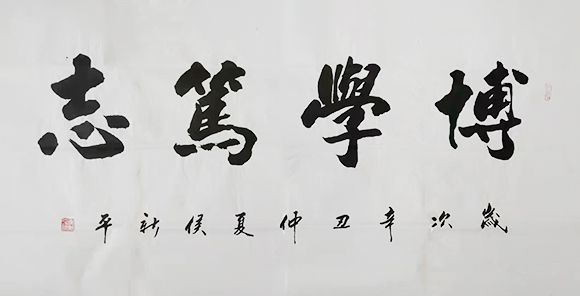 博學篤志
歲次辛丑仲夏侯新平